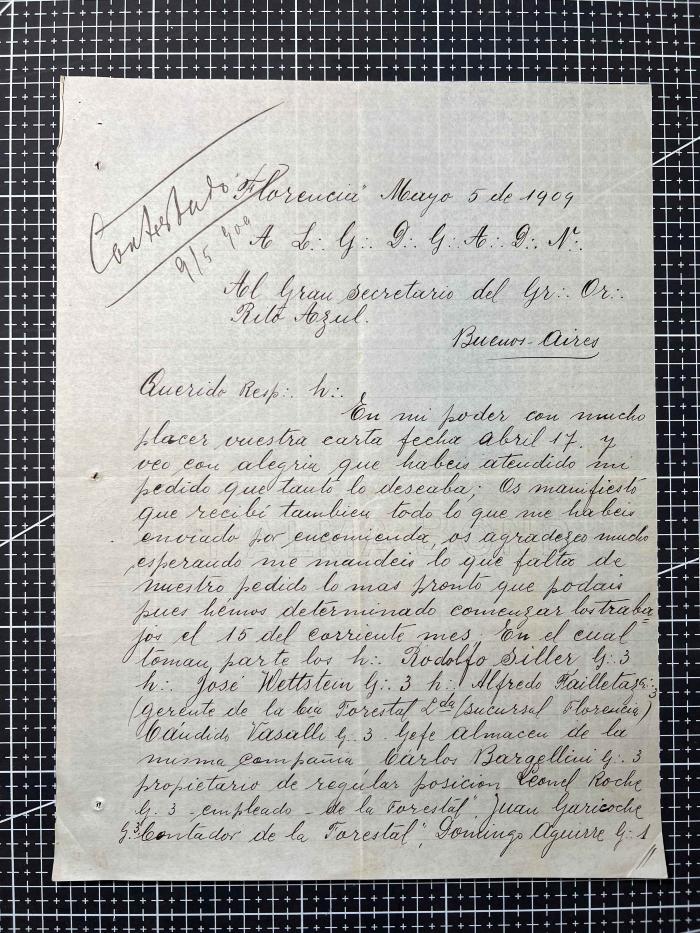 Contestado
9/5 909
"Florencia" Mayo 5 de 1909
A L∴ G∴ D∴ G∴ A∴ D∴ N∴
Al Gran Secretario del Gr∴ Or∴
Rito Azul.
Buenos-Aires
Querido Resp∴ h∴
En mi poder con mucho
placer vuestra carta fecha abril 17, y
veo con alegria que habeis atendido mi
pedido que tanto lo deseaba; Os manifiesto
que recibí tambien todo lo que me habeis
enviado por encomienda, os agradezco mucho
esperando me mandeis lo que falta de
nuestro pedido lo mas pronto que podais
pues hemos determinado comenzar los traba=
jos el 15 del corriente mes. En el cual
toman parte los h∴ Rodolfo Siller G∴ 3
h∴ José Wettstein G∴ 3 h∴ Alfredo Failletaz G∴ 3
(gerente de la Cia Forestal Lda (sucursal Florencia)
Cándido Vasalli G∴ 3 Gefe almacen de la
misma compañia Carlos Bargellini G∴ 3
propietario de regular posicion Leonel Roche
G∴ 3 -empleado- de la Forestal", Juan Garicoche
G∴3 Contador de la Forestal", Domingo Aguirre G∴ 1